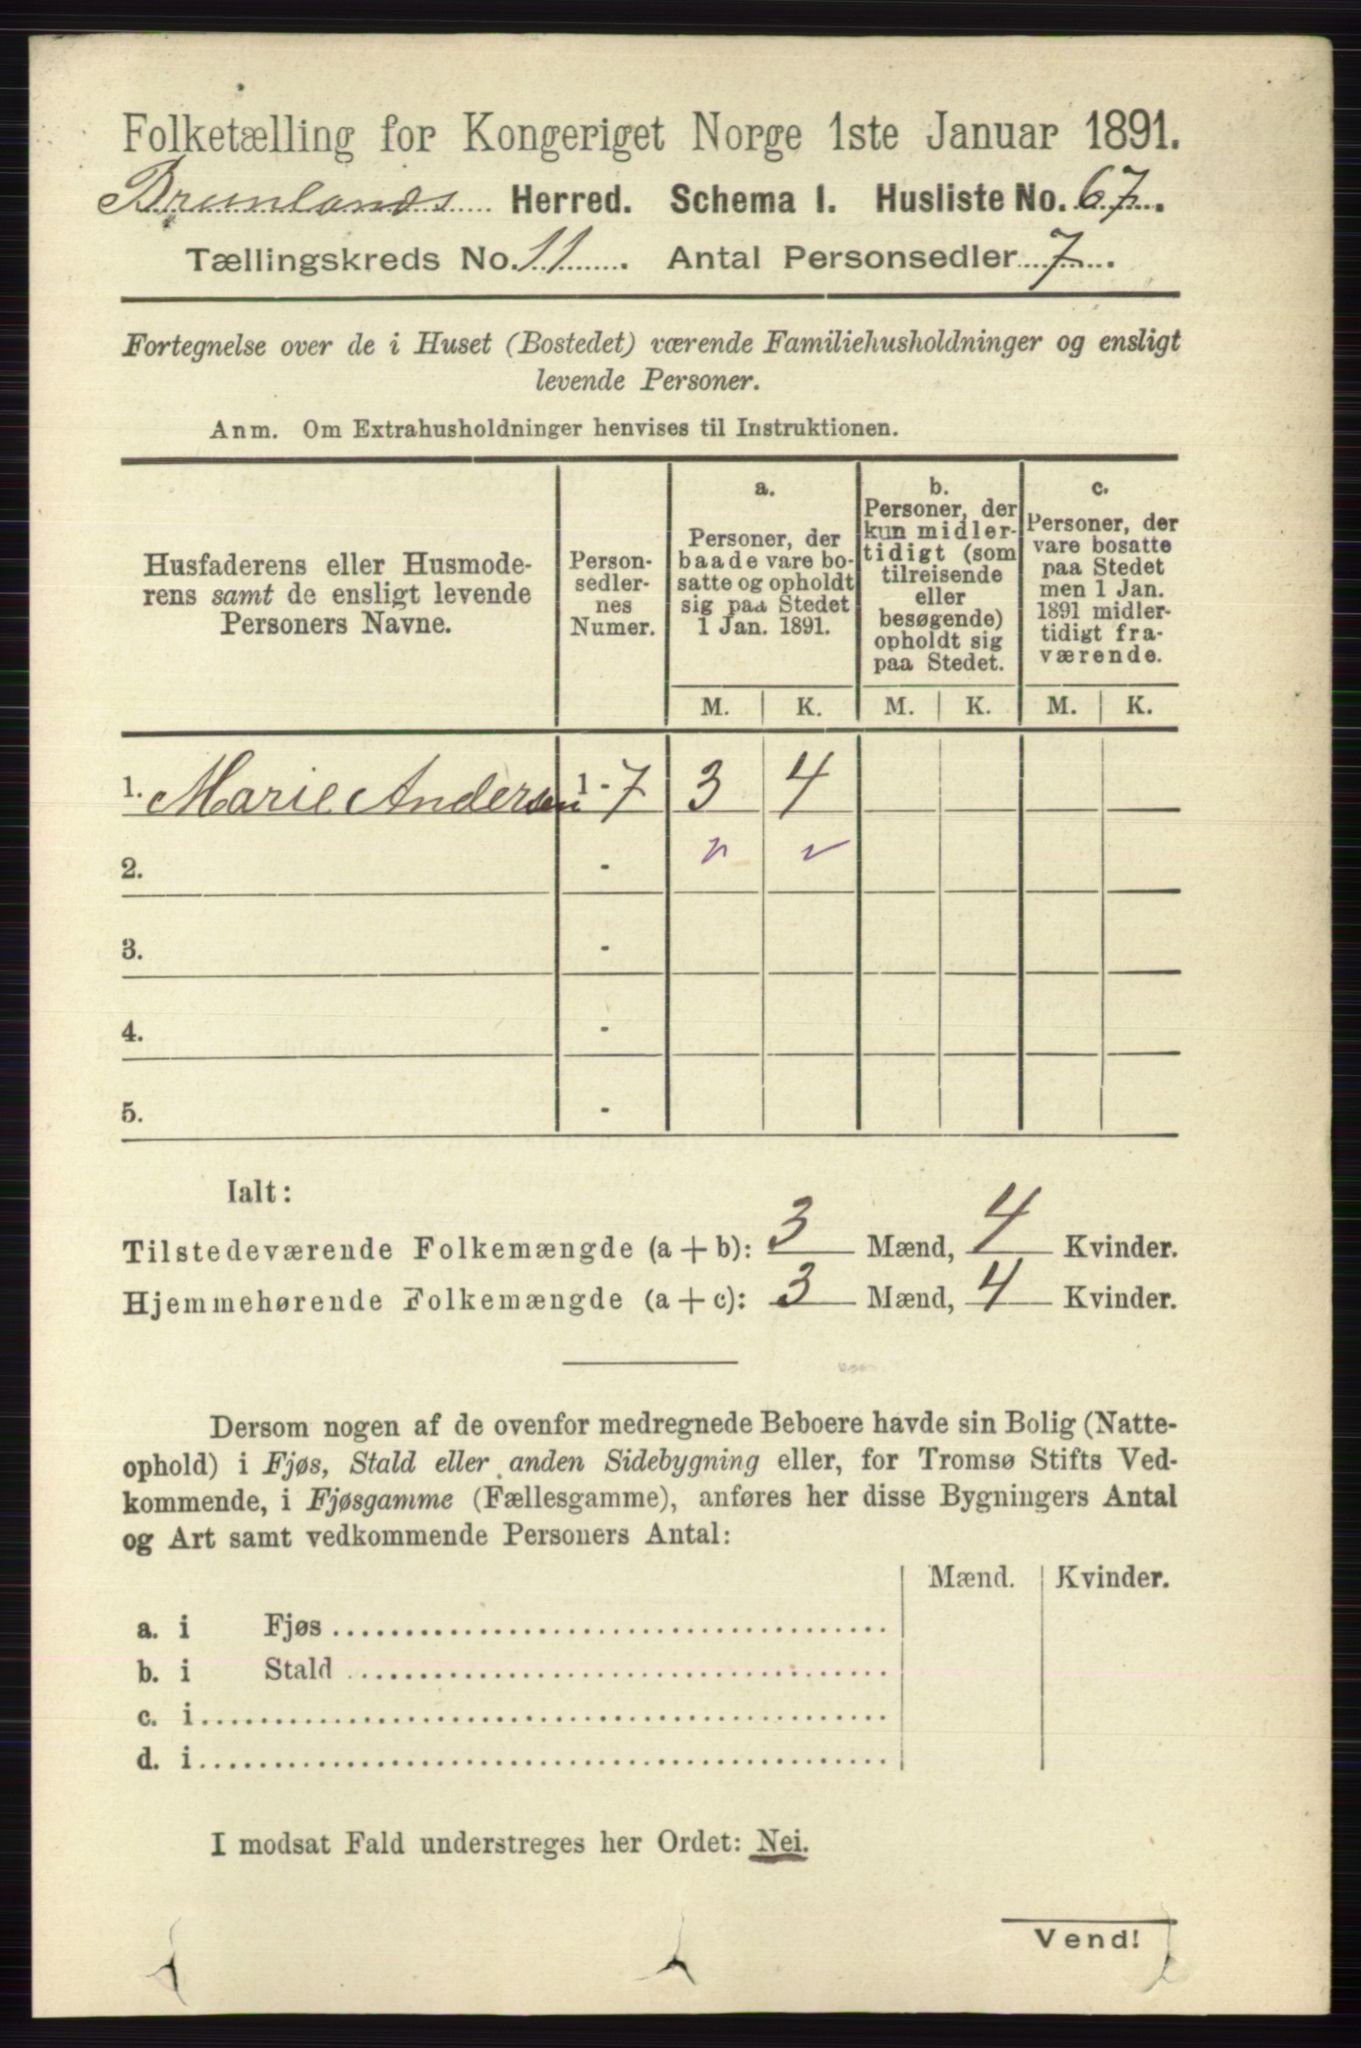 Folketælling for Kongeriget Norge 1ste Januar 1891.
Brunlanæs Herred. Schema I. Husliste No. 67.
Tællingskreds No. 11. Antal Personsedler 7.
Fortegnelse over de i Huset (Bostedet) værende Familiehusholdninger og ensligt
levende Personer.
Anm. Om Extrahusholdninger henvises til Instruktionen.
Husfaderens eller Husmode-
rens samt de ensligt levende
Personers Navne.
Person-
sedler-
nes
Numer.
a.
Personer, der
baade vare bo-
satte og opholdt
sig paa Stedet
1 Jan. 1891.
b.
Personer, der
kun midler-
tidigt (som
tilreisende
eller
besøgende)
opholdt sig
paa Stedet.
c.
Personer, der
vare bosatte
paa Stedet
men 1 Jan.
1891 midler-
tidigt fra-
værende.
M. K. M. K. M. K.
1. Marie Andersen 1 - 7 3 4
2. -
3. -
4. -
5. -
Ialt:
Tilstedeværende Folkemængde (a + b): 3 Mænd, 4 Kvinder.
Hjemmehørende Folkemængde (a + c): 3 Mænd, 4 Kvinder.
Dersom nogen af de ovenfor medregnede Beboere havde sin Bolig (Natte-
ophold) i Fjøs, Stald eller anden Sidebygning eller, for Tromsø Stifts Ved-
kommende, i Fjøsgamme (Fællesgamme), anføres her disse Bygningers Antal
og Art samt vedkommende Personers Antal:
Mænd. Kvinder.
a. i Fjøs
b. i Stald
c. i
d. i
I modsat Fald understreges her Ordet: Nei.
Vend!